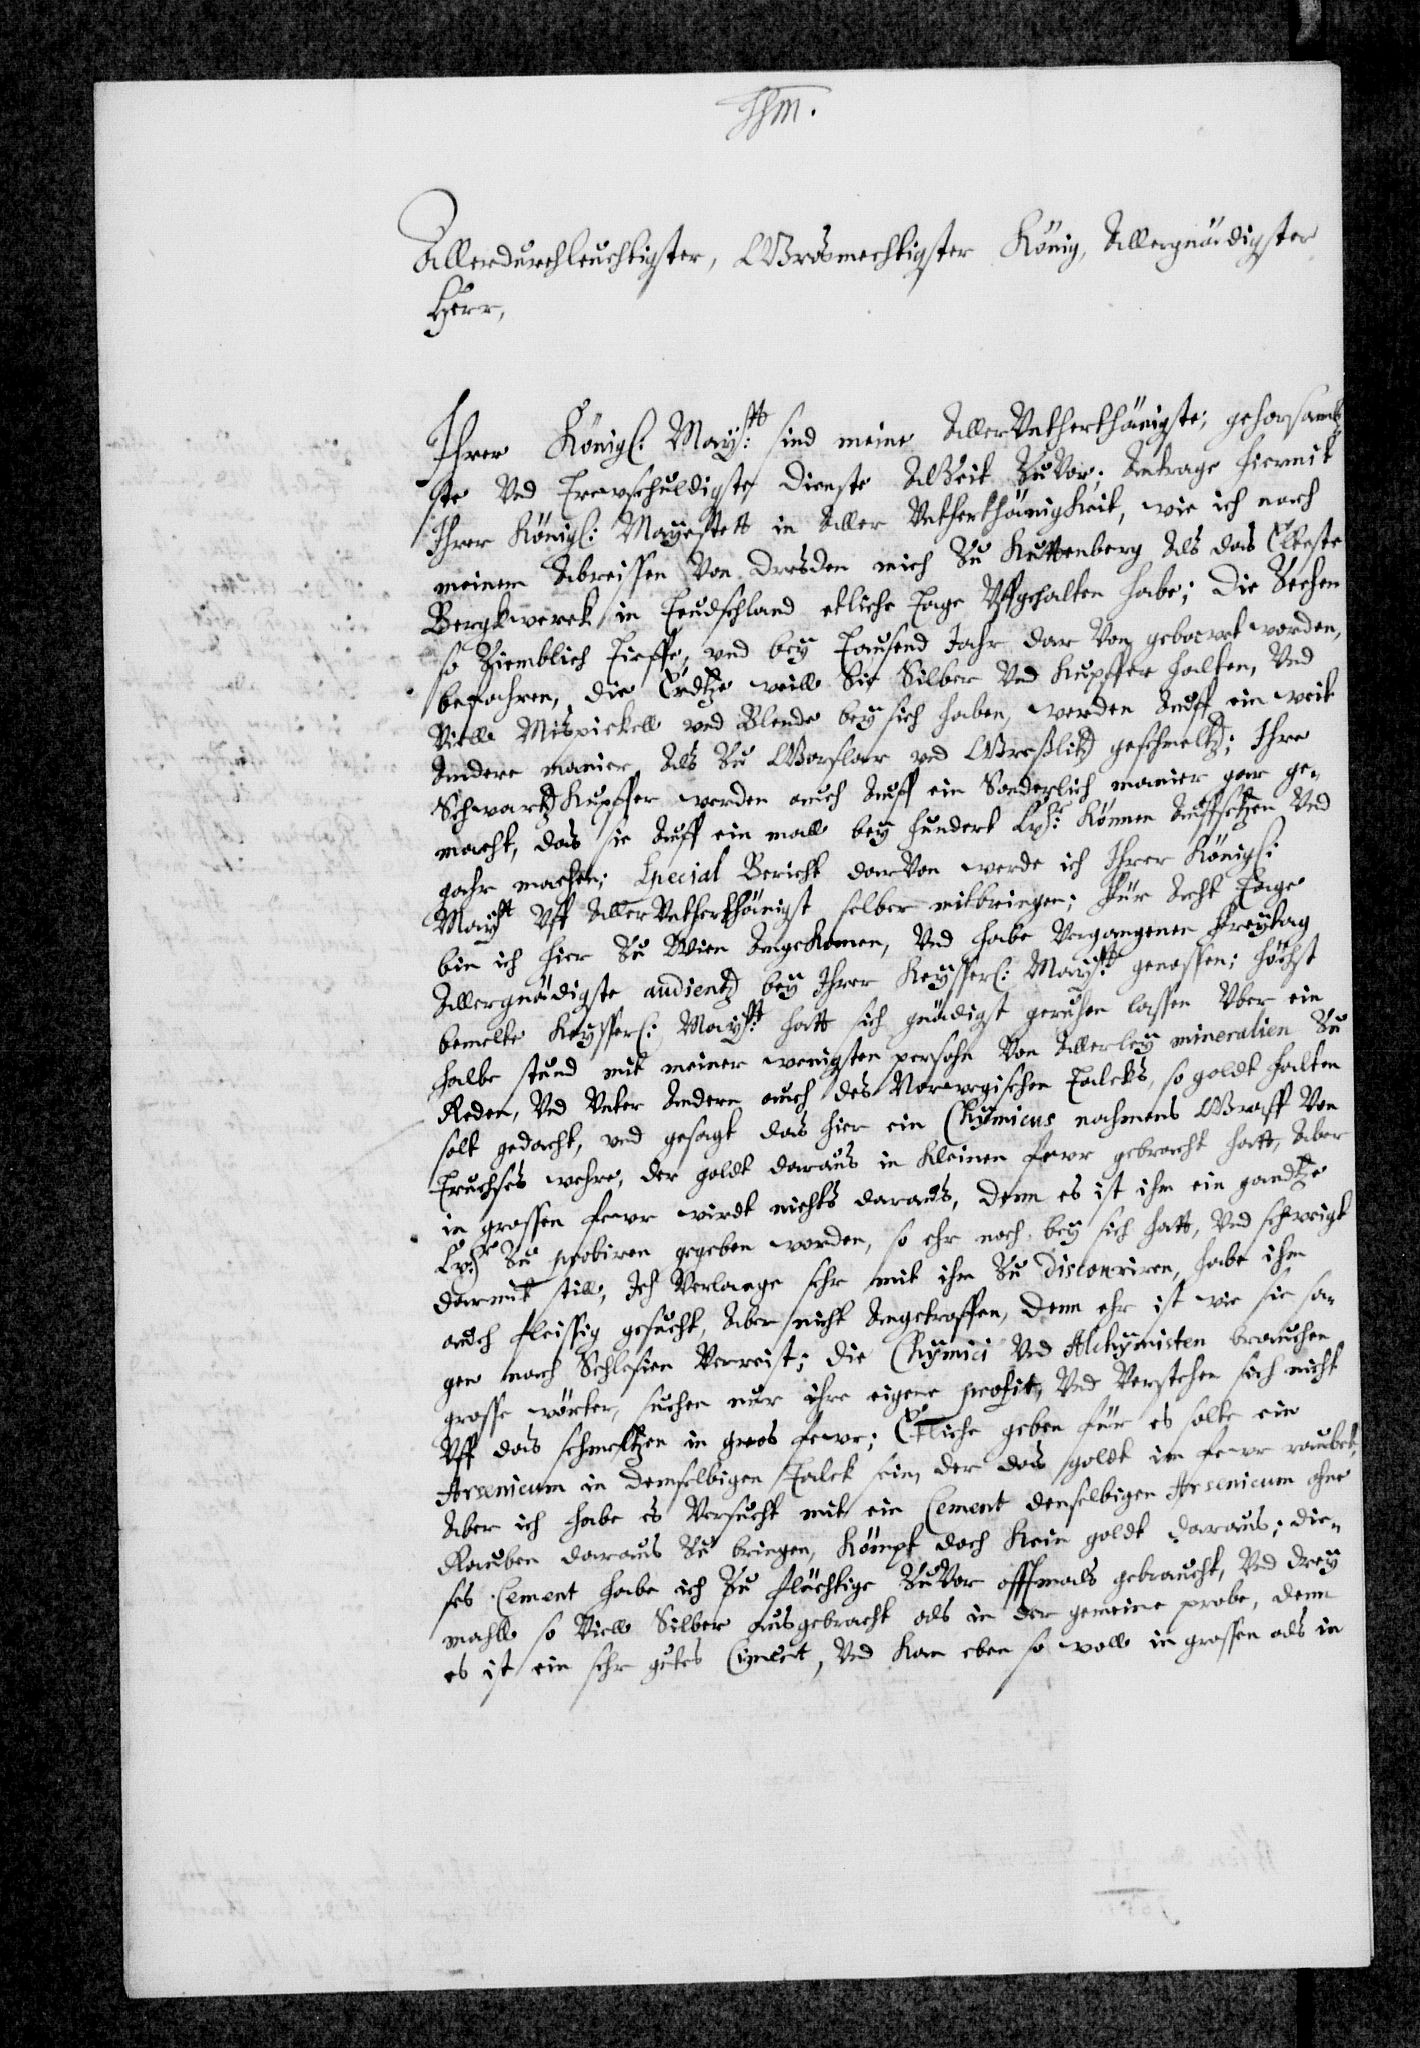 Jhm.
Allerdurchleuchtigster, Grosmechtigster König, Allergnädigster
Herr,
Ihrer Königl: Mayst: sind meine AllerVntherthänigste, gehorsamb
ste Vnd Trewschuldigste dienste AlZeit ZuVor; Antrage hiermit
Ihrer Königl: Mayestett in Aller Vntherthänigkeit, wie ich nach
meinem Abreissen Von Dresden mich Zu Kuttenberg Als das Elteste
Bergkwerck in Teudschland etliche Tage Vffgehalten habe; Die Zechen
so Ziemblich Tieffe, vnd bey Tausend Jahr dar Von gebawet worden,
befahren, die Ertze weill Sie Silber Vnd Kupffer halten, Vnd
Viell Mispickell vnd Blende bey sich haben, werden Auff ein weit
Andere manier Als Zu Goslar vnd Greßlitz geschmeltz; Ihre
Schwartz Kupffer werden auch Auff ein Sonderlich manier gar ge-
macht, das sie Auff ein mall bey hundert Ctr: Können Auffsetzen Vnd
gahr machen; Special Bericht darVon werde ich Ihrer Königl:
Mayst Vff AllerVntherthänigst selber mitbringen; Für Acht Tage
bin ich hier Zu Wien AngeKomen, Vnd habe Vergangenen Freytag
Allergnädigste audientz bey Ihrer Keysserl: Mayst: genossen; höchst
bemelte Keysserl: Mayst: hatt sich gnädigst geruhen lassen Vber ein
halbe stund mit meiner wenigsten persohn Von Allerley mineralien Zu
Reden, Vnd Vnter Andern auch des Norwegischen Talcks, so goldt halten
solt gedacht, vnd gesagt das hier ein Chymicus nahmens Graff Von
Truchses wehre, der goldt daraus in Kleinen fewr gebracht hatt, Aber
in grossen fewr wirdt nichts daraus, denn es ist ihm ein gandtze
Ctr: Zu probiren gegeben worden, so ehr noch bey sich hatt, Vnd schweigt
darmit still, Ich Verlange sehr mit ihm Zu discouriren, habe ihm
auch fleissig gesucht, Aber nicht Angetroffen, denn ehr ist wie sie sa-
gen nach Schlesien Verreist; die Chymici Vnd Alchymisten brauchen
grosse wörter, suchen nur ihre eigene profit, Vnd Verstehen sich nicht
Vff das schmeltzen in gros fewr; Etliche geben für es solte ein
Arsenicum in demselbigen Talck sein, der das goldt im fewr raubet,
Aber ich habe es Versucht mit ein Cement denselbigen Arsenicum ohne
Rauben daraus Zu bringen, Kömpt doch Kein goldt daraus; die-
ses Cement habe ich Zu flüchtige ZuVor offtmals gebraucht, Vnd drey
mahll so Viell Silber ausgebracht als in der gemeine probe, denn
es ist ein sehr gutes Ciment, Vnd Kan eben so woll in grossen als in